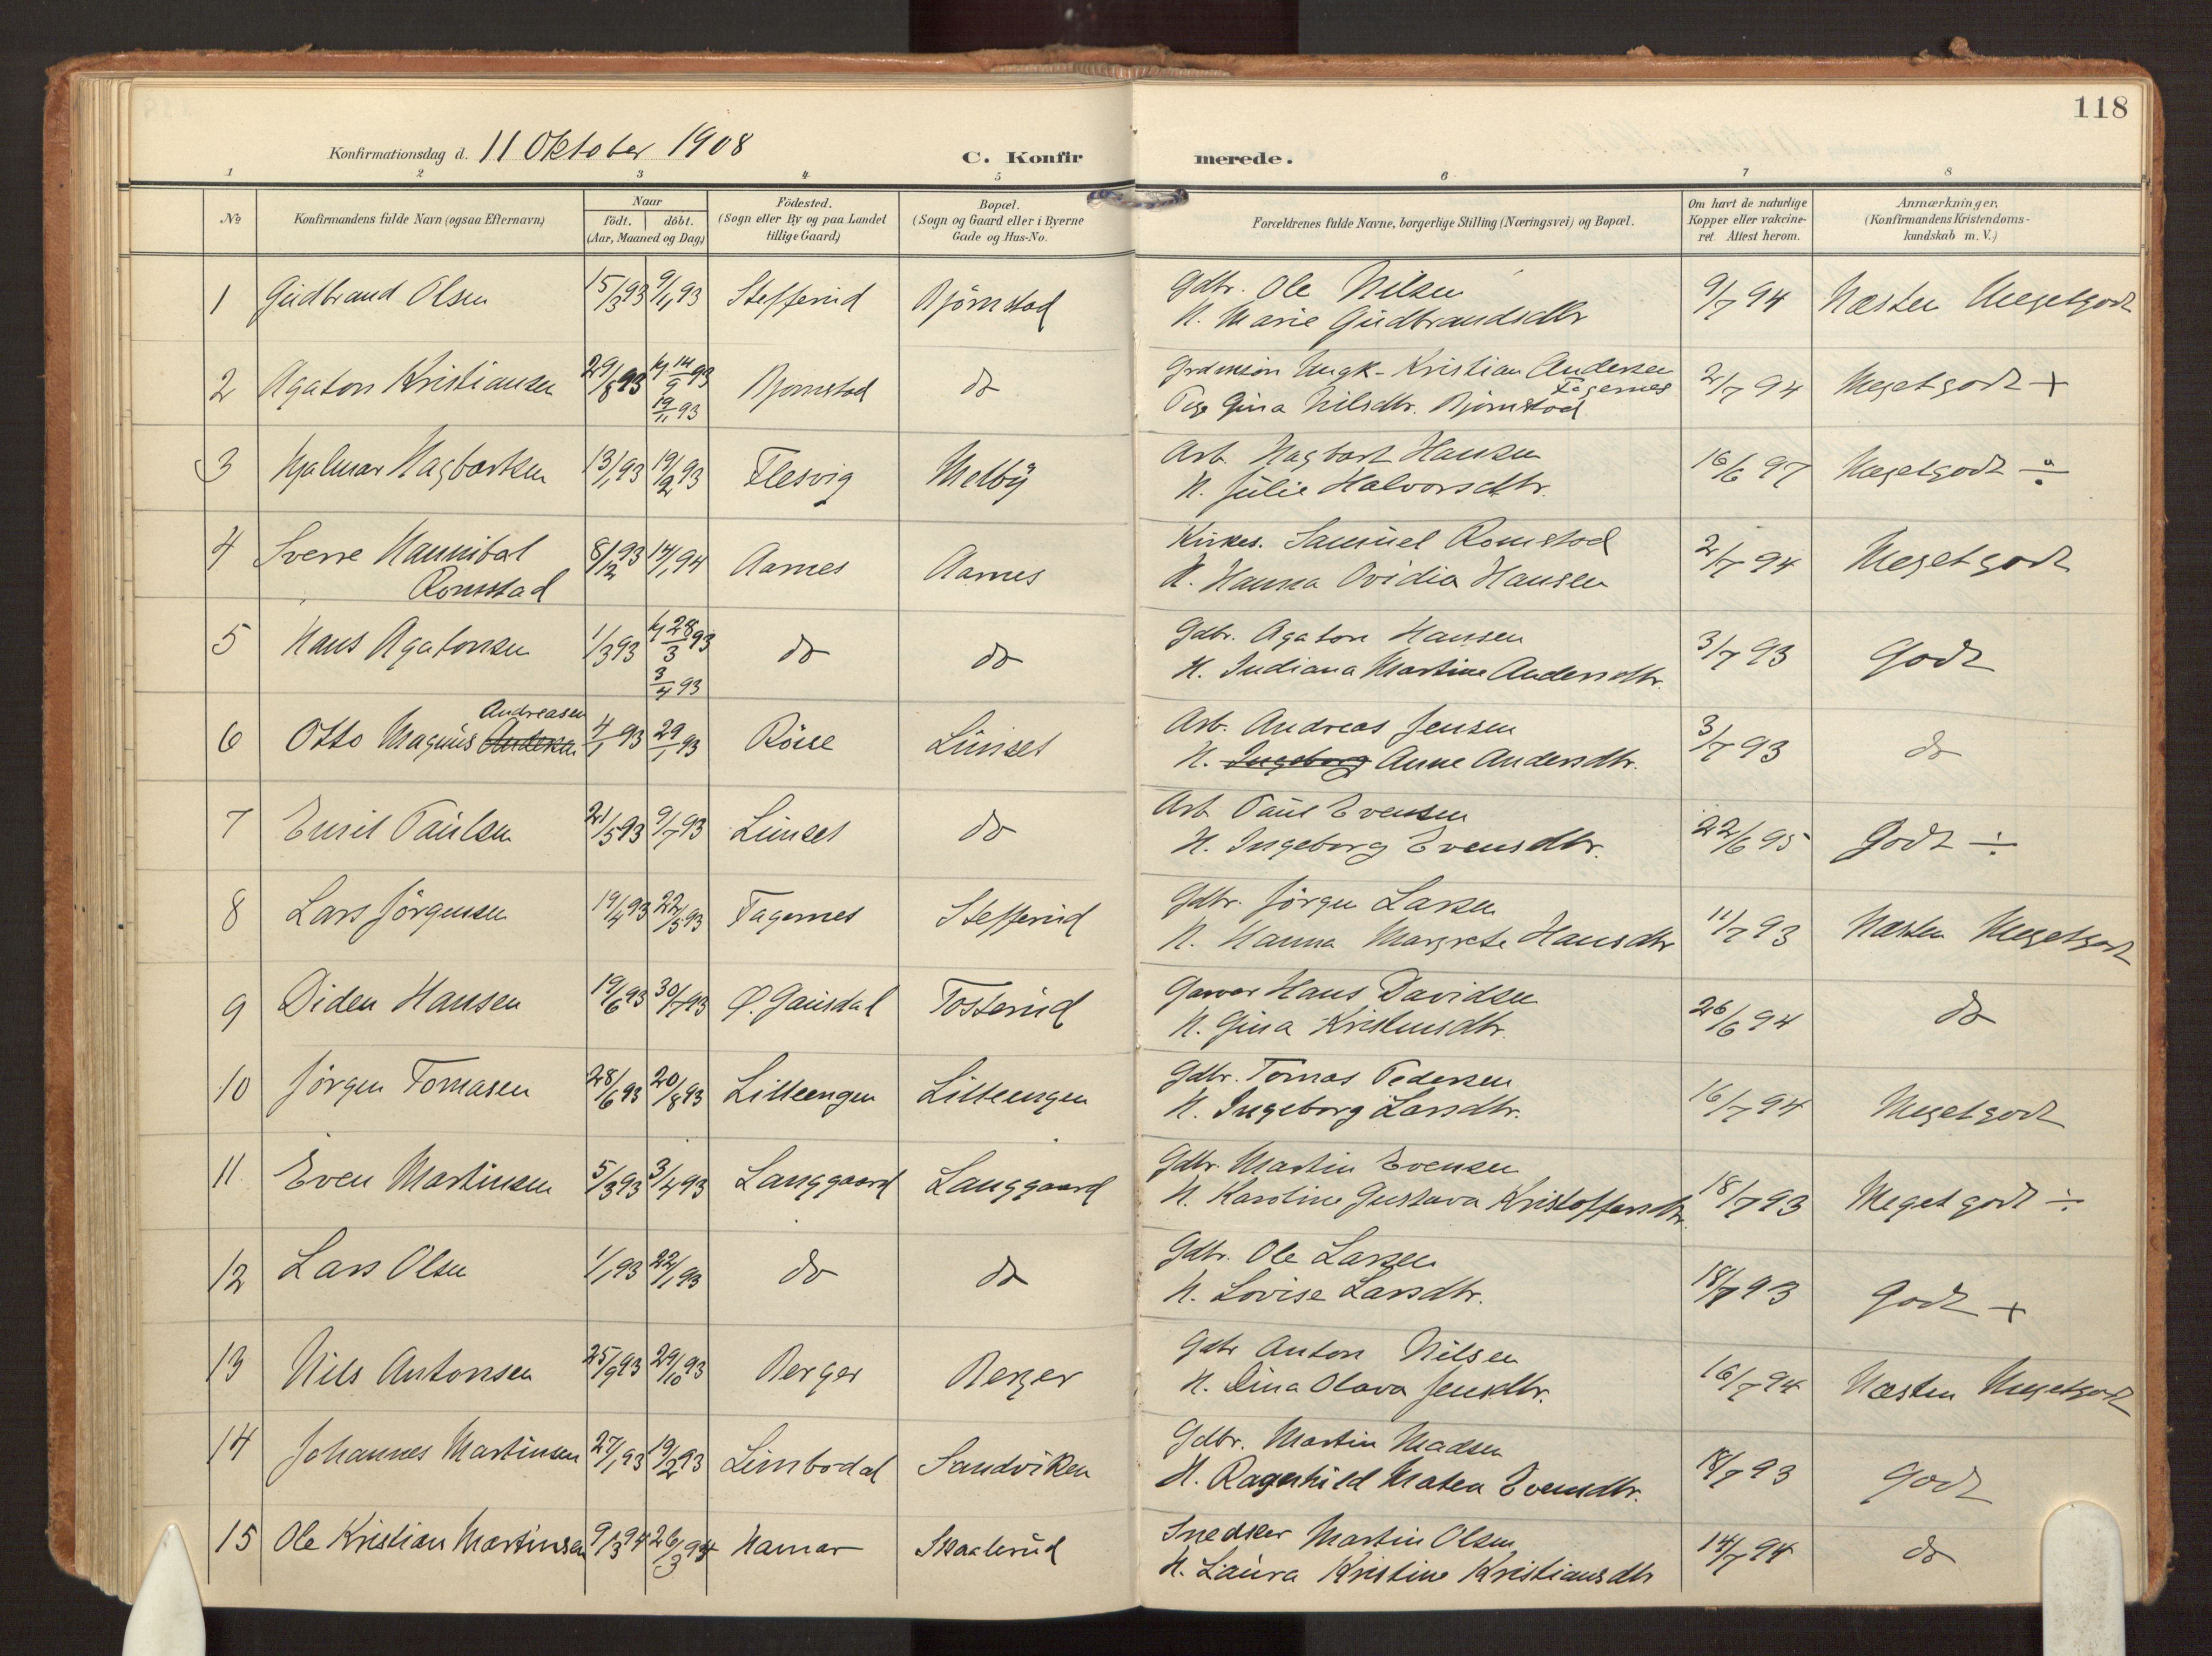 118
Konfirmationsdag d. 11 Oktober 1908
C. Konfirmerede.
1 2 3 4 5 6 7 8
No
Konfirmandens fulde Navn (ogsaa Efternavn)
Naar
födt. döbt.
(Aar, Maaned og Dag)
Födested.
(Sogn eller By og paa Landet
tillige Gaard)
Bopæl.
(Sogn og Gaard eller i Byerne
Gade og Hus-No.
Forældrenes fulde Navne, borgerlige Stilling (Næringsvei) og Bopæl.
Om havt de naturlige
Kopper eller vakcine-
ret. Attest herom.
Anmærkninger.
(Konfirmandens Kristendoms-
kundskab m. V.)
1 Gudbrand Olsen 15/3 93 9/4 93 Stefferud Björnstad Gdbr. Ole Nilsen 9/7 94 Næsten Megetgodt
H. Marie Gudbrandsdtr
2 Agaton Kristiansen 29/8 93 hj 14/9 93 Bjørnstad do Ungk. Kristian Andersen 2/7 94 Megetgodt +
19/11 93 Fagernes
Pige Gina Nilsdtr. Bjørnstad
3 Hjalmar Hagbartsen 13/1 93 19/2 93 Flesvig Melby Arb. Hagbart Hansen 16/6 97 Megetgodt ÷
H. Julie Halvorsdtr.
4 Sverre Hannibal 8/12 93 14/1 94 Aarnes Aarnes Kirkes. Samuel Romstad 2/7 94 Megetgodt
Romstad H. Hanna Ovidia Hansen
5 Hans Agatonsen 1/3 93 hj 28/3 93 do do Gdbr. Agaton Hansen 3/7 93 Godt
3/4 93 H. Indiana Martine Andersdtr.
Andreasen
6 Otto Magnus Andersen 4/1 93 29/1 93 Röise Lunset Arb. Andreas Jensen 3/7 93 do
H. Ingeborg Anne Andersdtr.
7 Emil Paulsen 21/5 93 9/7 93 Lunset do Arb. Paul Evensen 22/6 95 Godt ÷
H. Ingeborg Evensdtr.
8 Lars Jörgensen 19/4 93 22/5 93 Fagernes Stefferud Gdbr. Jörgen Larsen 11/7 93 Næsten Megetgodt
H. Hanna Margrete Hansdtr
9 Diden Hansen 19/6 93 30/7 93 Ø. Gausdal Tosterud Garver Hans Davidsen 26/6 94 do
H. Gina Kristensdtr.
10 Jörgen Tomasen 28/6 93 20/8 93 Lilleengen Lilleengen Gdbr. Tomas Pedersen 16/7 94 Megetgodt
H. Ingeborg Larsdtr.
11 Even Martinsen 5/3 93 3/4 93 Langgaard Langgaard Gdbr. Martin Evensen 18/7 93 Meget godt ÷
H. Karoline Gustava Kristoffersdtr.
12 Lars Olsen 1/1 93 22/1 93 do do Gdbr. Ole Larsen 18/7 93 Godt +
H. Lovise Larsdtr.
13 Nils Antonsen 25/9 93 29/10 93 Berger Berger Gdbr Anton Nilsen 16/7 94 Næsten Megetgodt
H. Dina Olava Jensdtr.
14 Johannes Martinsen 27/1 93 19/2 93 Limbodal Sandviken Gdbr. Martin Madsen 18/7 93 Godt
H. Ragnhild Matea Evensdtr.
15 Ole Kristian Martinsen 9/3 94 26/3 94 Hamar Skaalerud Snedker Martin Olsen 14/7 94 do
H. Laura Kristine Kristiansdtr